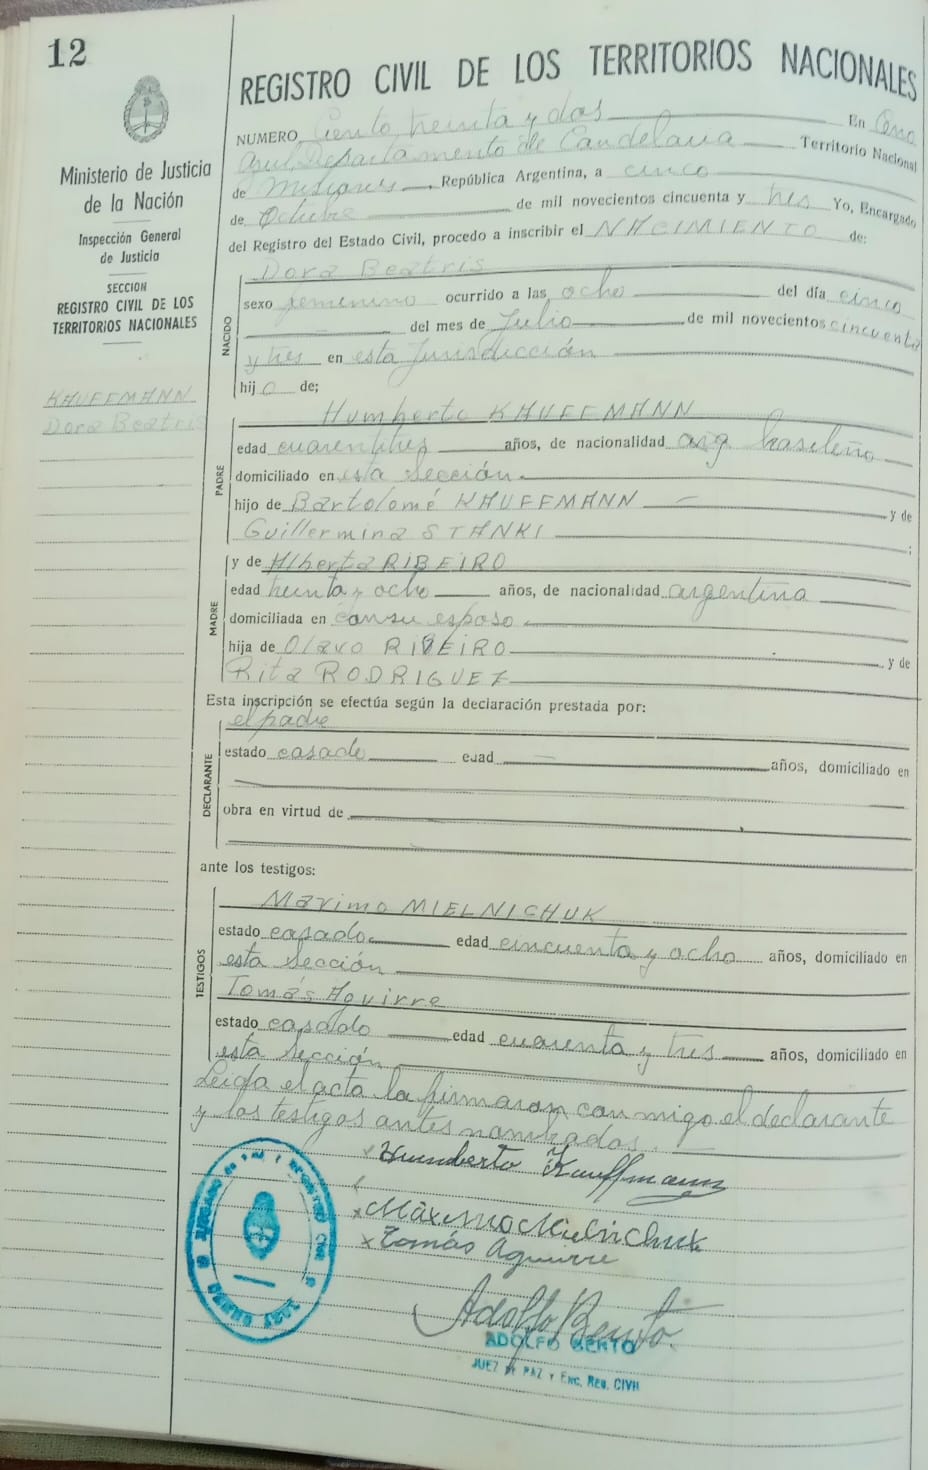 12
Ministerio de Justicia
de la Nación
Inspección General
de Justicia
SECCION
REGISTRO CIVIL DE LOS
TERRITORIOS NACIONALES
KAUFFMANN
Dora Beatris
REGISTRO CIVIL DE LOS TERRITORIOS NACIONALES
NUMERO Ciento treinta y dos En Cerro
Azul, Departamento de Candelaria Territorio Nacional
de Misiones, República Argentina, a cinco
de Octubre de mil novecientos cincuenta y tres Yo, Encargado
del Registro del Estado Civil, procedo a inscribir el NACIMIENTO de:
NACIDO
Dora Beatris
sexo femenino ocurrido a las ocho del día cinco
del mes de Julio de mil novecientos cincuenta
y tres en esta Jurisdicción
hija de;
PADRE
Humberto KAUFFMANN
edad cuarentitres años, de nacionalidad arg. brasileño
domiciliado en esta sección.
hijo de Bartolomé KAUFFMANN y de
Guillermina STANKI ;
MADRE
y de Alberta RIBEIRO
edad treinta y ocho años, de nacionalidad argentina
domiciliada en con su esposo
hija de Olavo RIBEIRO y de
Rita RODRIGUEZ
Esta inscripción se efectúa según la declaración prestada por:
DECLARANTE
el padre
estado casado edad años, domiciliado en
obra en virtud de
ante los testigos:
TESTIGOS
Maximo MIELNICHUK
estado casado edad cincuenta y ocho años, domiciliado en
esta Sección
Tomás Aguirre
estado casado edad cuarenta y tres años, domiciliado en
esta Sección
Leida el acta la firmaron con migo el declarante
y los testigos antes nombrados.
x Humberto Kauffmann
x Máximo Mielnichuk
x Tomás Aguirre
Adolfo Bento.
ADOLFO BENTO
JUEZ DE PAZ Y ENC. REG. CIVIL
JUZGADO DE PAZ Y REGISTRO CIVIL
CERRO AZUL